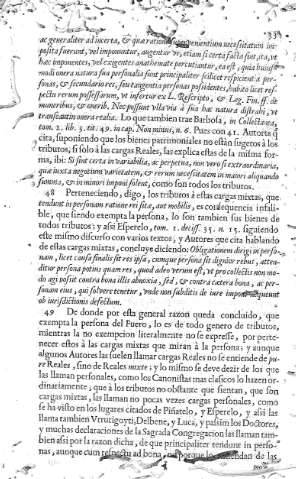 33
ac generaliter ad incerta, & quæ ratione supervenientium necessitatum im-
posita fuerunt, vel imponuntur, augentur vè, etiam si certa facta sint, ita, ut
hac imponentes, vel exigentes anathemate percutiantur, ea est, quia huius-
modi onera natura sua personalia sunt principaliter scilicet respiciunt per-
sonas, & secundario res, seu tangentia personas possidentes, habito licet res-
pectu rerum possessarum, ut infertur ex L. Rescripto, & Leg. Fin. ff. de
muneribus, & onerib. Nec possunt ulla via à sua hac natura distrahi, ut
transeant in onera realia. Lo que tambien trae Barbosa, in Collectanea,
tom. 2. lib. 3. tit. 49. in cap. Non minus, n. 6. Pues con 41. Autores q̃
cita, suponiendo que los bienes patrimoniales no estàn sugetos à los
tributos, si solo à las cargas Reales, las explica estas de la misma for-
ma, ibi: Si sint certa in variabilia, ac perpetua, non vero si extraordinaria,
quæ iuxta negotiorum varietatem, & rerum necessitatem in maiori aliquando
summa, & in minori imponi solent, como son todos los tributos.
48 Perteneciendo, digo, los tributos à estas cargas mixtas, que
tendunt in personam ratione rei sitæ, aut mobilis, es consequencia infali-
ble, que siendo exempta la persona, lo son tambien sus bienes de
todos tributos; y assi Esperelo, tom. 1. decis. 55. n. 15. siguiendo
este mismo discurso con varios textos, y Autores que cita hablando
de estas cargas mixtas, concluye diciendo Obligationem dirigi in perso-
nam, licet causa finalis sit res ipsa, cumque persona sit dignior rebus, atten-
ditur persona potius quam res, quod adeo verum est, ut pro collectis non mo-
do agi possit contra bona illis obnoxia, sed, & contra cætera bona, ac per-
sonam eius, qui solvere tenetur, unde non subditis de iure imponi nequeunt
ob iurisdictionis defectum.
49 De donde por esta general razon queda concluìdo, que
exempta la persona del Fuero, lo es de todo genero de tributos,
mientras la no exempcion literalmente no se expresse, por perte-
necer estos à las cargas mixtas que miran à la persona; y aunque
algunos Autores las suelen llamar cargas Reales no se entiende de pu-
re Reales, sino de Reales mixte; y lo mismo se deve dezir de los que
las llaman personales, como los Canonistas mas clasicos lo hazen or-
dinariamente; que à los tributos no obstante que sientan, que son
cargas mixtas, las llaman no pocas vezes cargas personales, como
se ha visto en los lugares citados de Piñatelo, y Esperelo, y assi las
llama tambien Vrrutigoyti, Delbene, y Luca, y passim los Doctores,
y muchas declaraciones de la Sagrada Congregacion las llaman tam-
bien assi por la razon dicha, de que principaliter tendunt in perso-
nas, aunque cum respectu ad bona, porque los